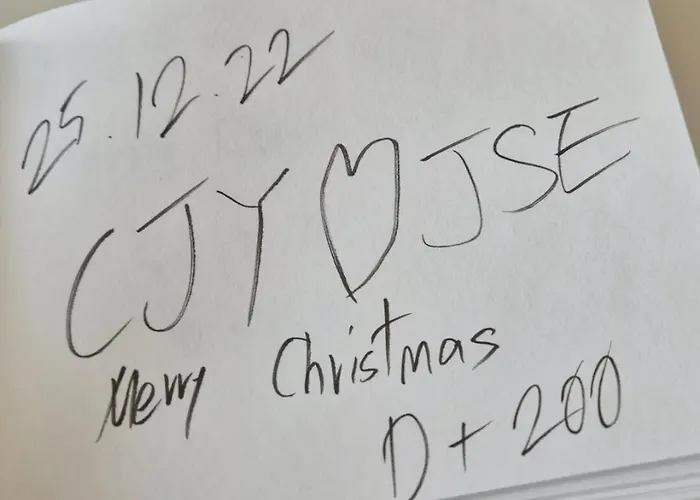 25.12.22
CJY ♡ JSE
Merry Christmas
D+200